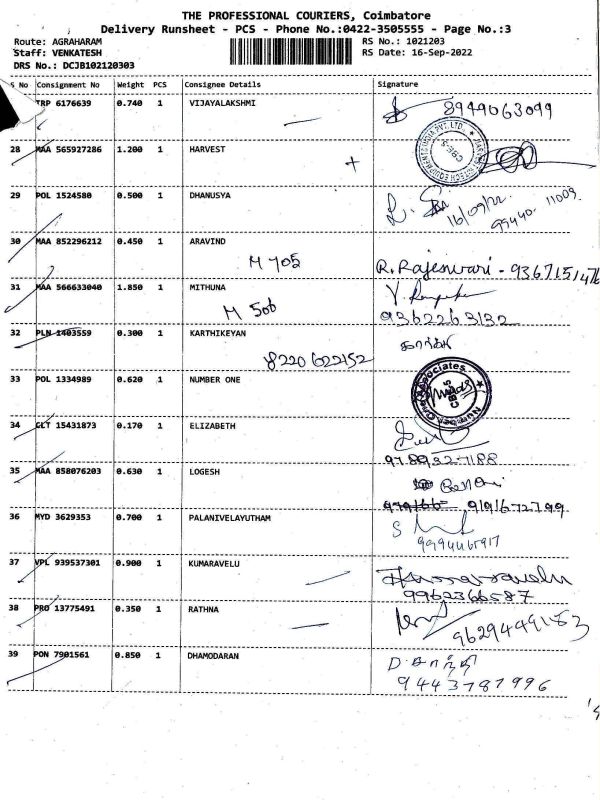 THE PROFESSIONAL COURIERS, Coimbatore
Delivery Runsheet - PCS - Phone No.:0422-3505555 - Page No.:3
Route: AGRAHARAM RS No.: 1021203
Staff: VENKATESH RS Date: 16-Sep-2022
DRS No.: DCJB102120303
No Consignment No Weight PCS Consignee Details Signature
TRP 6176639 0.740 1 VIJAYALAKSHMI 8949063099
28 MAA 565927286 1.200 1 HARVEST
29 POL 1524580 0.500 1 DHANUSYA
16/09/22
99440 11009
30 MAA 852296212 0.450 1 ARAVIND
M 705 R. Rajeswari - 9367151476
31 MAA 566633040 1.850 1 MITHUNA
M 506 9362263132
32 PLN 1403559 0.300 1 KARTHIKEYAN
8220622152
33 POL 1334989 0.620 1 NUMBER ONE
Number One Associates
34 GLT 15431873 0.170 1 ELIZABETH
9789327188
35 MAA 858076203 0.630 1 LOGESH
9191672799
36 MYD 3629353 0.700 1 PALANIVELAYUTHAM
9994467917
37 VPL 939537301 0.900 1 KUMARAVELU Kumaravelu
9962366587
38 PRO 13775491 0.350 1 RATHNA
9629449183
39 PON 7901561 0.850 1 DHAMODARAN D. சாந்தி
9443787996